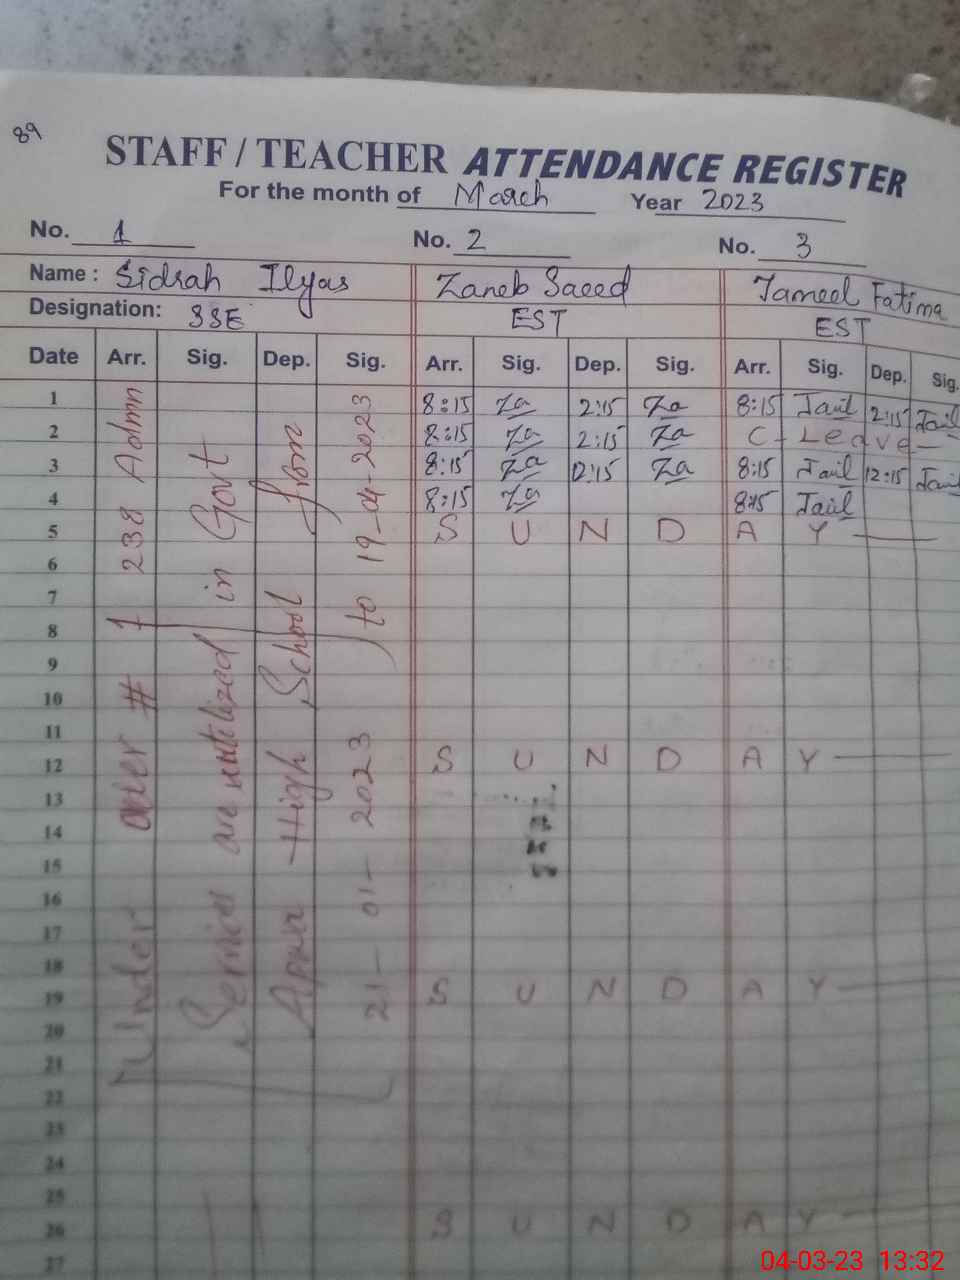 89
STAFF / TEACHER ATTENDANCE REGISTER
For the month of March Year 2023
No. 1 No. 2 No. 3
Name : Sidrah Ilyas Zaneb Saeed Jameel Fatima
Designation: SSE EST EST
Date Arr. Sig. Dep. Sig. Arr. Sig. Dep. Sig. Arr. Sig. Dep. Sig.
1 8:15 Za 2:15 Za 8:15 Jail 2:15 Jail
2 8:15 Za 2:15 Za C - Leave -
3 8:15 Za 12:15 Za 8:15 Jail 12:15 Jail
4 8:15 Za 8:15 Jail
5 S U N D A Y
6
7
8
9
10
11
12 S U N D A Y
13
14
15
16
17
18
19 S U N D A Y
20
21
22
23
24
25
26 S U N D A Y
27
Under order # 1 238 Admn
Services are utilized in Govt
High School from
21-01-2023 to 19-04-2023
04-03-23 13:32